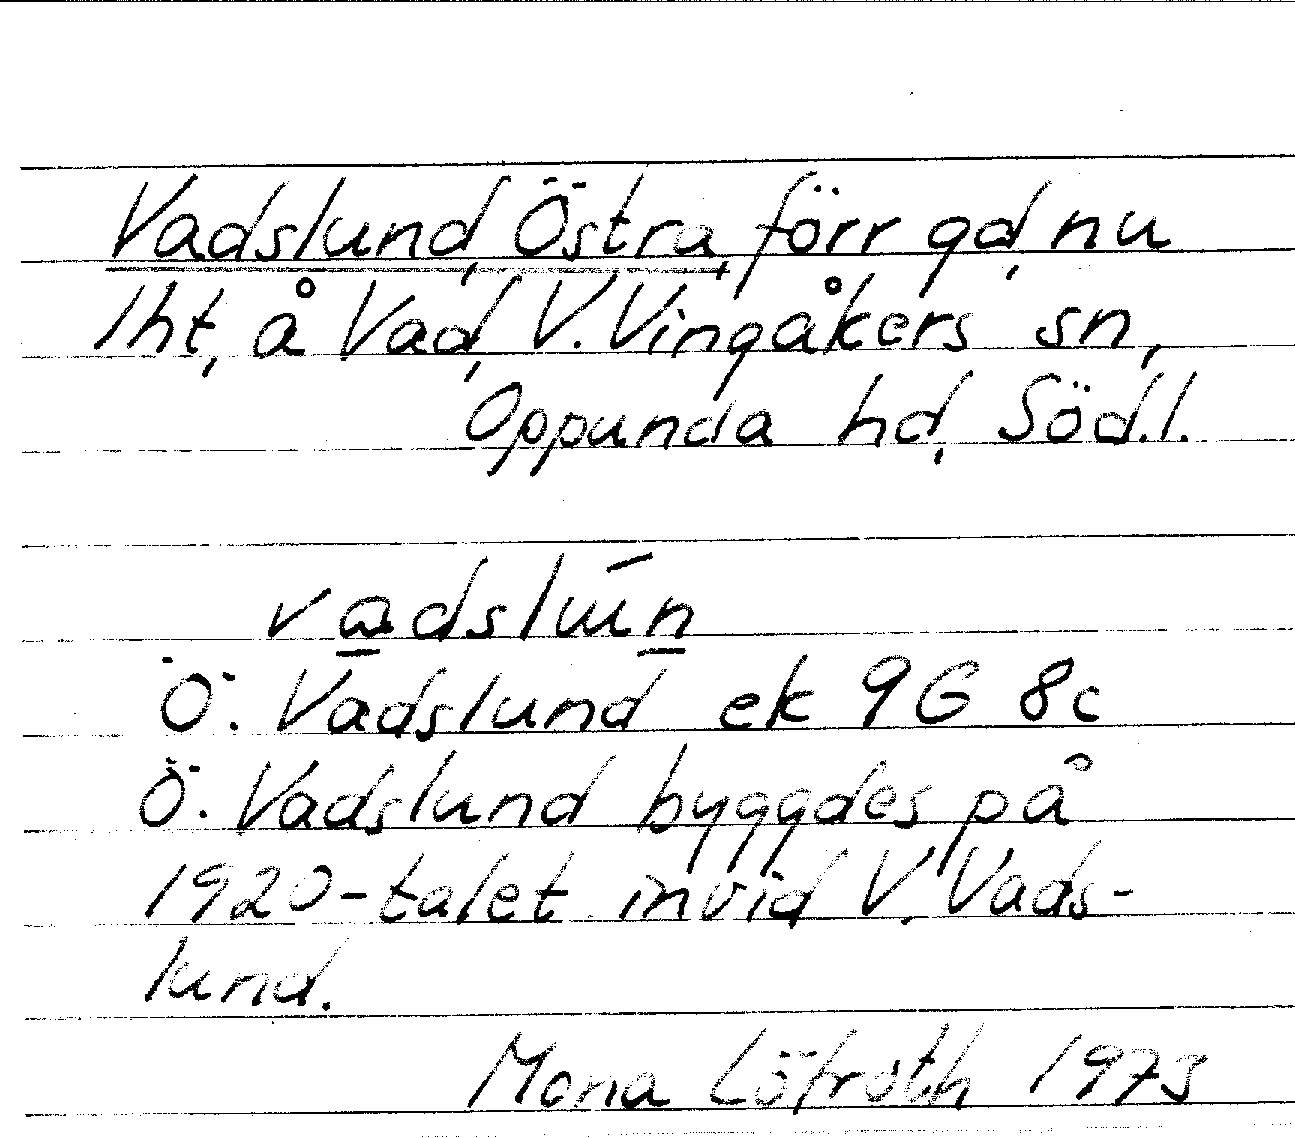 Vadslund, Östra, förr gd, nu
lht, å Vad, V. Vingåkers sn,
Oppunda hd, Söd.l.
vadslún
Ö. Vadslund ek 9G 8c
Ö. Vadslund byggdes på
1920-talet invid V. Vads-
lund.
Mona Löfroth 1973